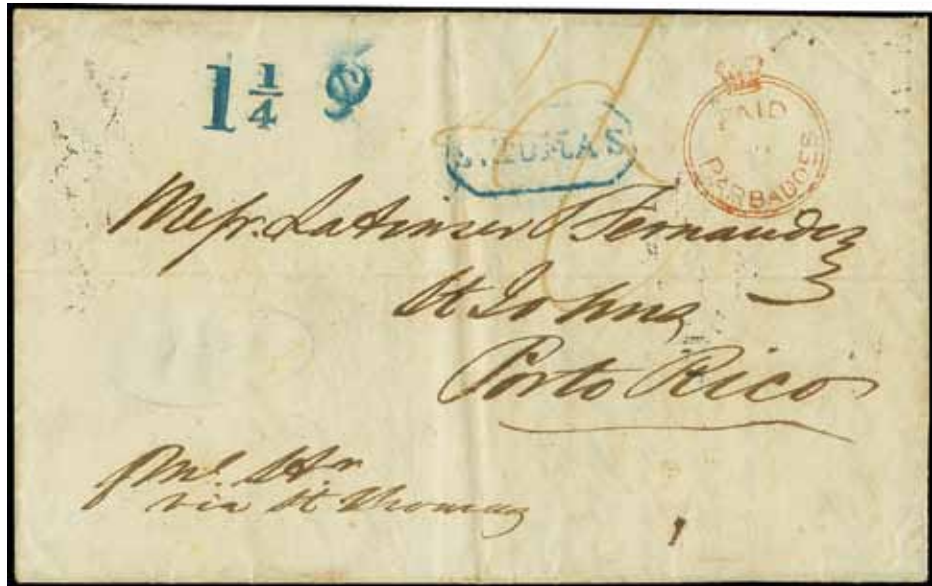 1 1/4
S. TOMAS
PAID
BARBADOES
Messr. Latimer & Fernandez
St Johns
Porto Rico
via St Thomas